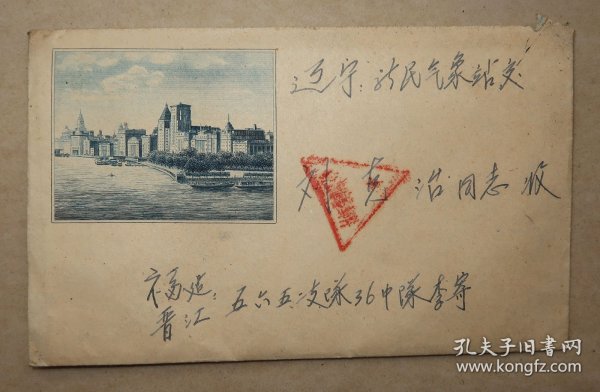 辽宁:新民气象站交
刘克治同志收
福建:
晋江 五六五支队36中队李寄
孔夫子旧书网
www.kongfz.com